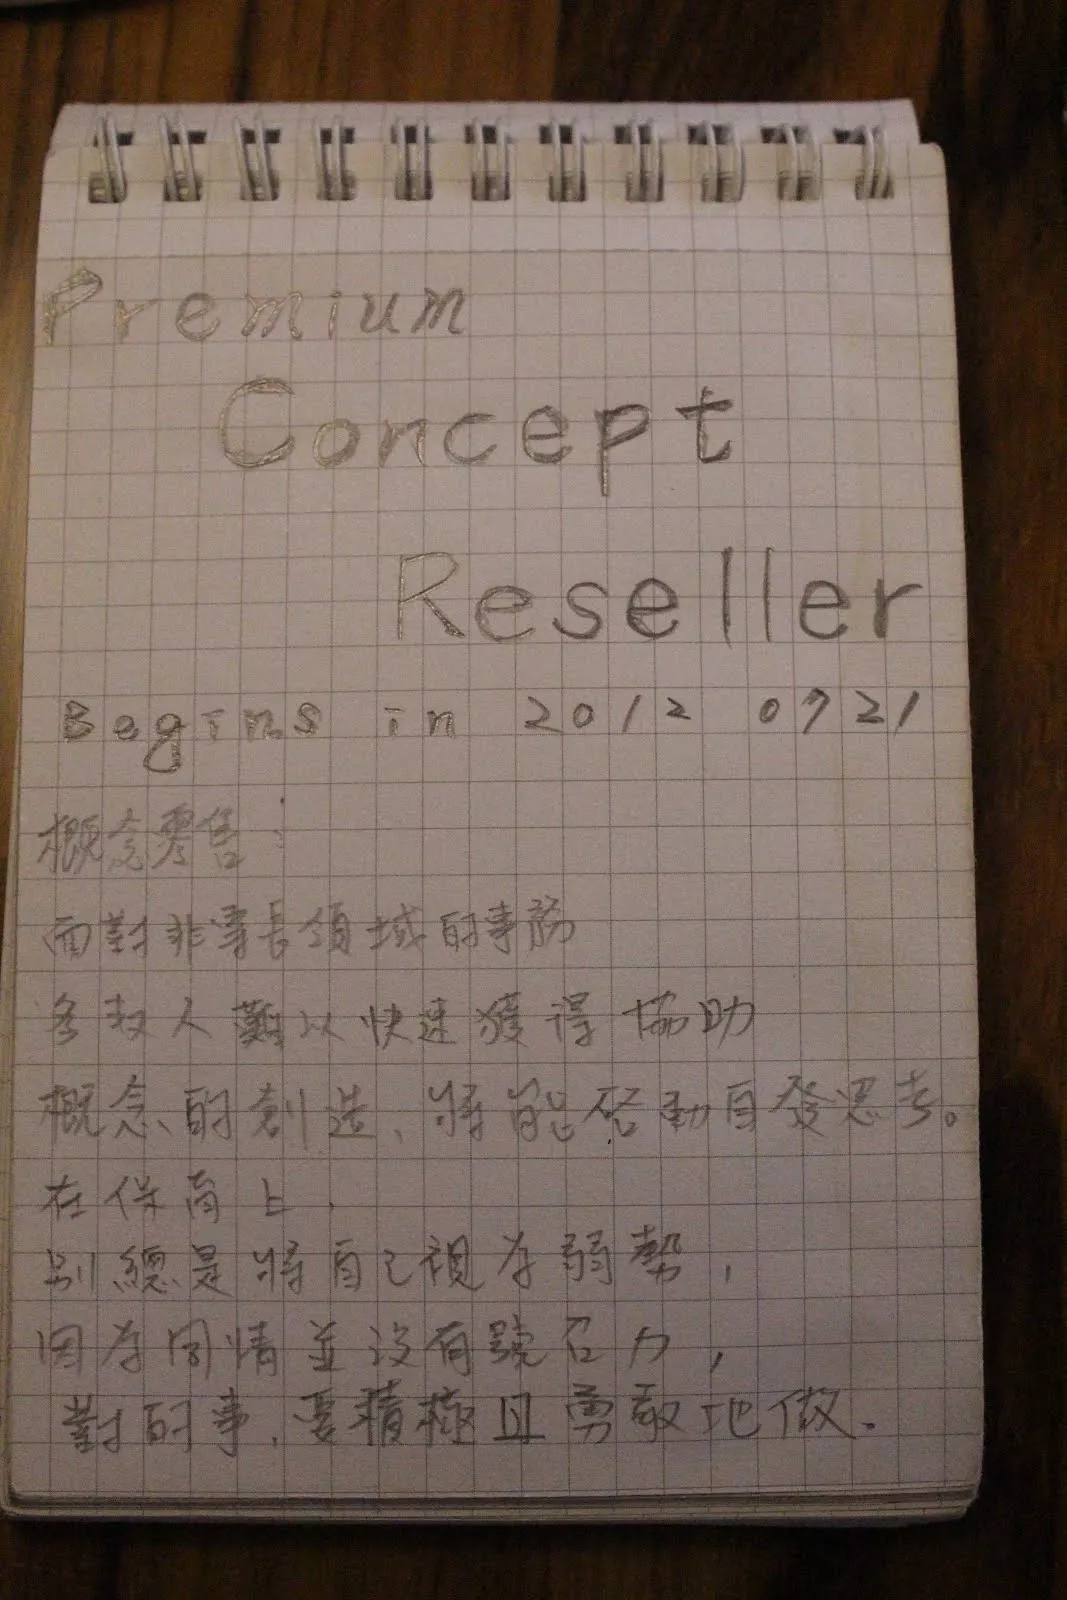 Premium
Concept
Reseller
Begins in 2012 0721
概念零售：
面對非專長領域的事務
多數人難以快速獲得協助
概念的創造、將能啓動自發思考。
在保育上，
別總是將自己視為弱勢，
因為同情並沒有號召力，
對的事、要積極且勇敢地做。